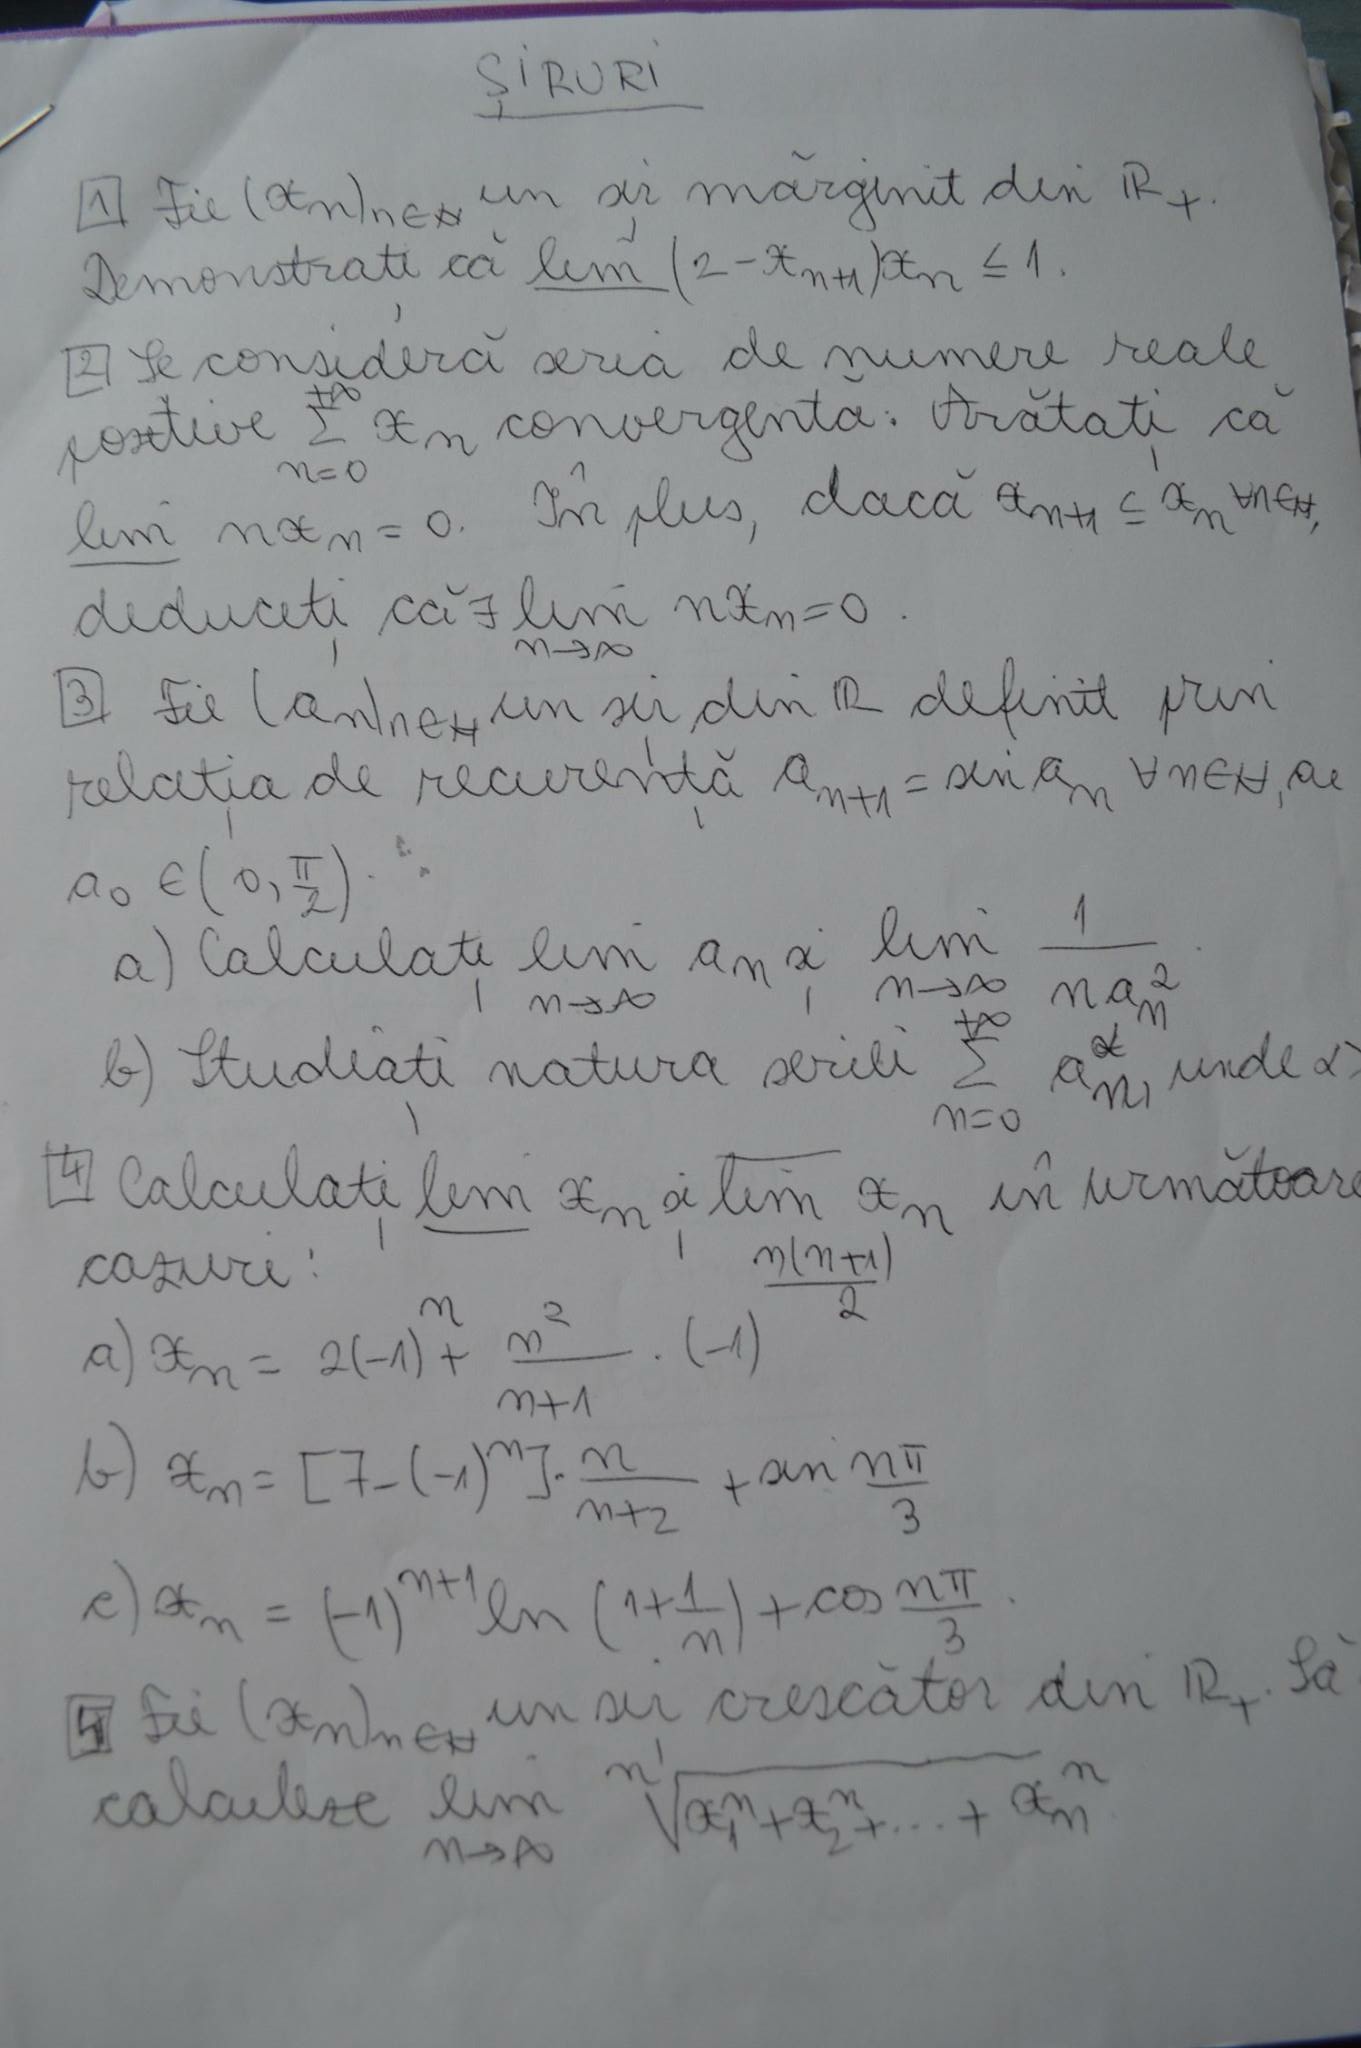 ȘIRURI
1 Fie (xn)n∈ℕ un șir mărginit din ℝ+.
Demonstrați că lim (2-xn+1)xn ≤ 1.
2 Se consideră seria de numere reale
pozitive +∞ Σ n=0 xn convergentă. Arătați că
lim nxn = 0. În plus, dacă xn+1 ≤ xn ∀n∈ℕ,
deduceți că ∃ lim n→∞ nxn = 0.
3 Fie (an)n∈ℕ un șir din ℝ definit prin
relația de recurență an+1 = sin an ∀n∈ℕ, cu
a0 ∈ (0, π/2).
a) Calculați lim n→∞ an și lim n→∞ 1/(n an²).
b) Studiați natura seriei +∞ Σ n=0 an^α, unde α>
4 Calculați lim xn și lim xn în următoare
cazuri:
a) xn = 2(-1)^n + n²/(n+1) · (-1)^(n(n+1)/2)
b) xn = [7-(-1)^n]· n/(n+2) + sin nπ/3
c) xn = (-1)^(n+1) ln (1+1/n) + cos nπ/3.
5 Fie (xn)n∈ℕ un șir crescător din ℝ+. Să
calculeze lim n→∞ n√(x1^n + x2^n + ... + xn^n)